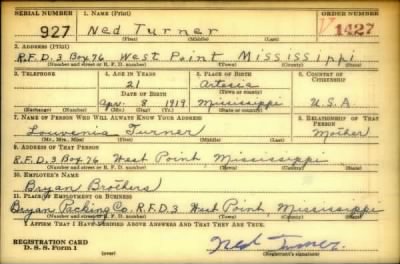 SERIAL NUMBER 1. NAME (Print) ORDER NUMBER
927 Ned Turner V1427
(First) (Middle) (Last)
2. ADDRESS (Print)
R.F.D. 3 Box 76 West Point Mississippi
(Number and street or R. F. D. number) (Town) (County) (State)
3. TELEPHONE 4. AGE IN YEARS 5. PLACE OF BIRTH 6. COUNTRY OF CITIZENSHIP
21 Artesia
DATE OF BIRTH (Town or county)
Apr. 8 1919 Mississippi U.S.A
(Exchange) (Number) (Mo.) (Day) (Yr.) (State or country)
7. NAME OF PERSON WHO WILL ALWAYS KNOW YOUR ADDRESS 8. RELATIONSHIP OF THAT PERSON
Louvenia Turner Mother
(Mr., Mrs., Miss) (First) (Middle) (Last)
9. ADDRESS OF THAT PERSON
R.F.D. 3 Box 76 West Point, Mississippi
(Number and street or R. F. D. number) (Town) (County) (State)
10. EMPLOYER'S NAME
Bryan Brothers
11. PLACE OF EMPLOYMENT OR BUSINESS
Bryan Packing Co. R.F.D. 3 West Point, Mississippi
(Number and street or R. F. D. number) (Town) (County) (State)
I AFFIRM THAT I HAVE VERIFIED ABOVE ANSWERS AND THAT THEY ARE TRUE.
REGISTRATION CARD
D. S. S. Form 1 (over) Ned Turner
(Registrant's signature)